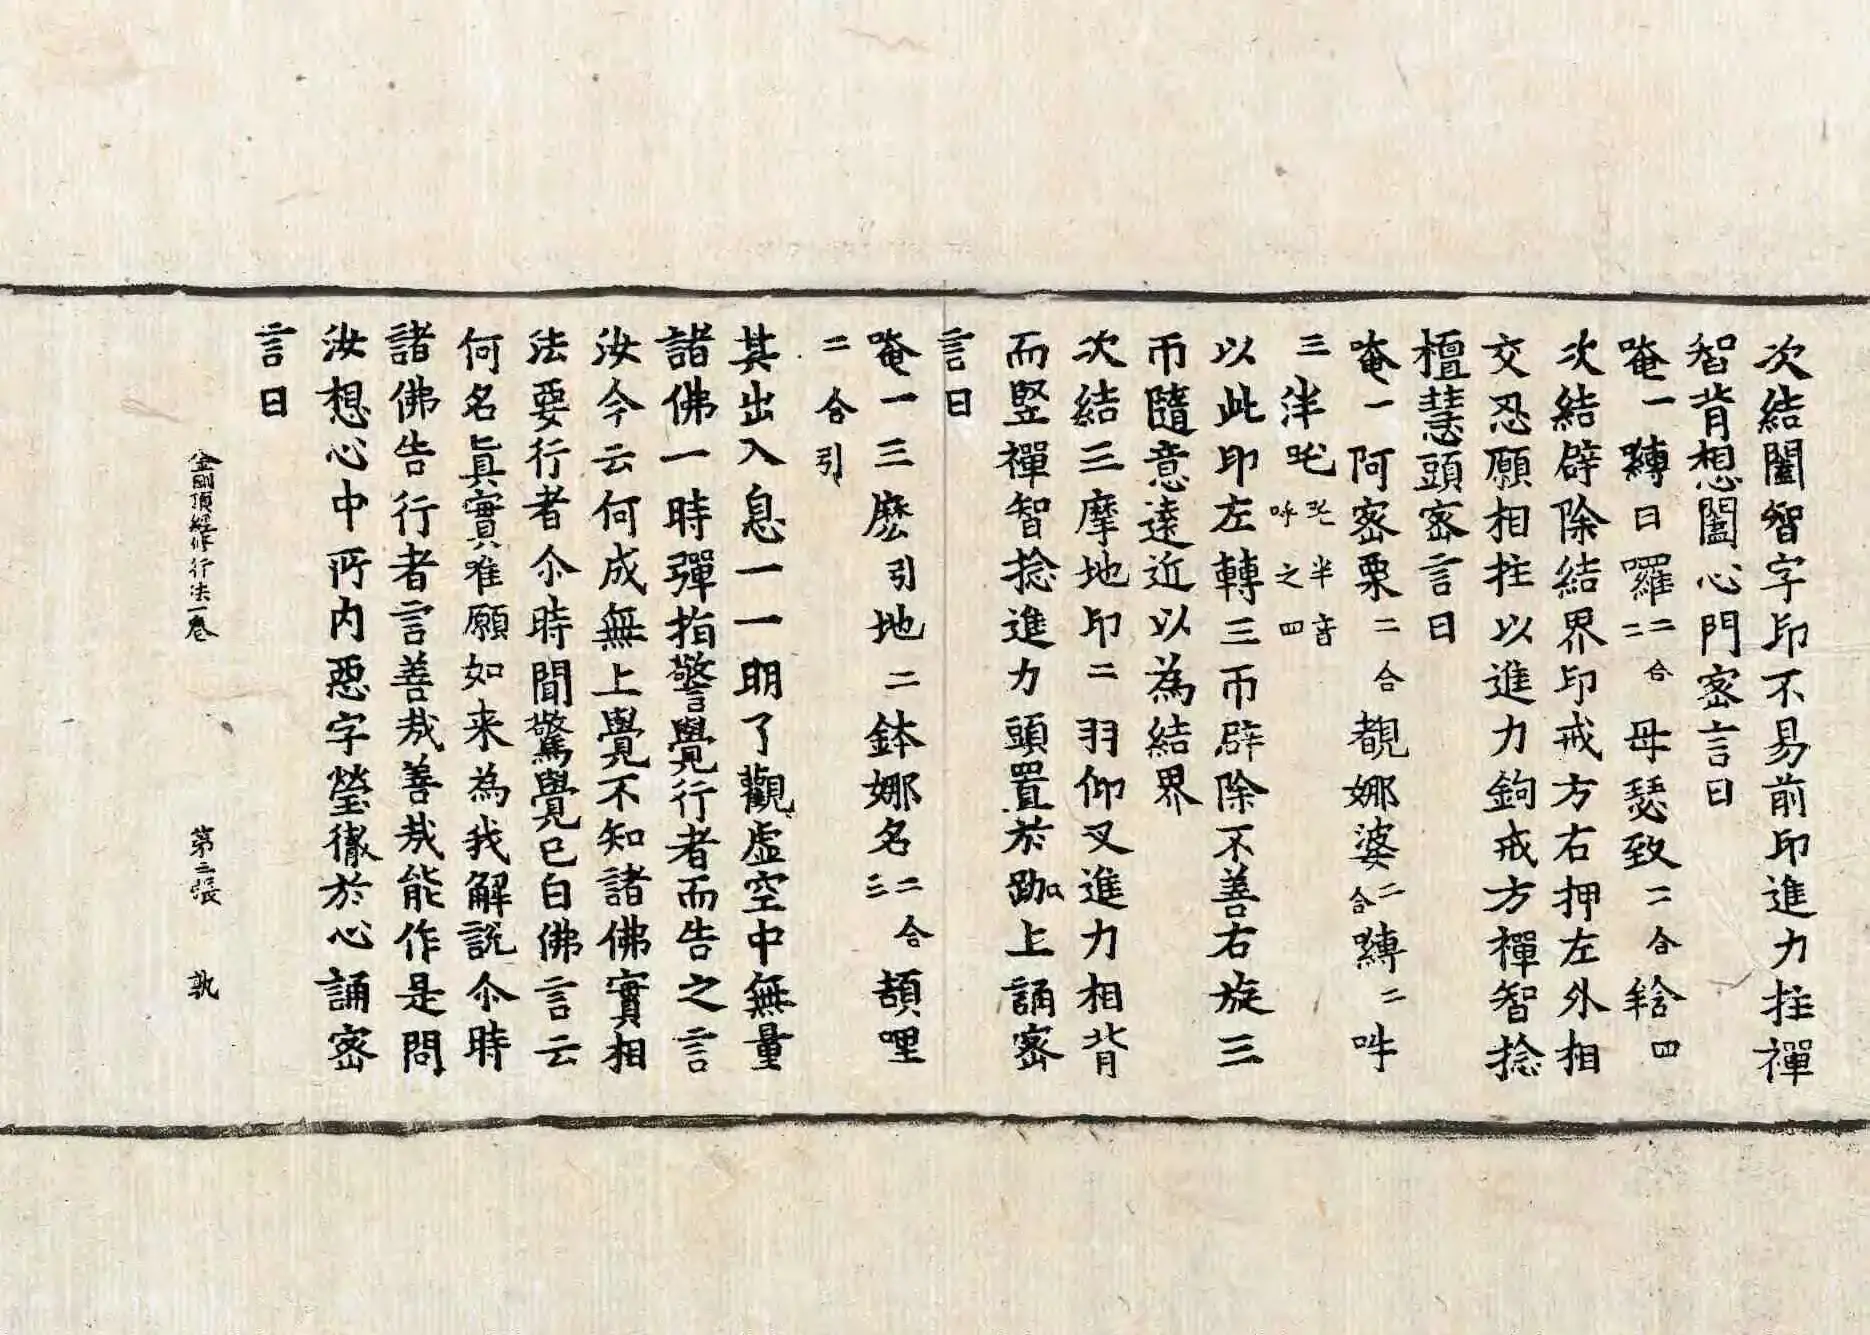 次結闔智字印不易前印進力拄禪
智背想闔心門密言曰
唵一嚩日囉二合二母瑟致二合鋡四
次結辟除結界印戒方右押左外相
交忍願相拄以進力鉤戒方禪智捻
檀慧頭密言曰
唵一阿密栗二合覩娜婆二合嚩二吽
三泮吒吒半音呼之四
以此印左轉三帀辟除不善右旋三
帀隨意遠近以為結界
次結三摩地印二羽仰叉進力相背
而竪禪智捻進力頭置於跏上誦密
言曰
唵一三麼引地二鉢娜名二合三頡哩
二合引
其出入息一一明了觀虛空中無量
諸佛一時彈指警覺行者而告之言
汝今云何成無上覺不知諸佛實相
法要行者尒時聞驚覺已白佛言云
何名真實唯願如来為我解説尒時
諸佛告行者言善哉善哉能作是問
汝想心中所内惡字瑩徹於心誦密
言曰
金剛頂經修行法一卷 第三張 孰